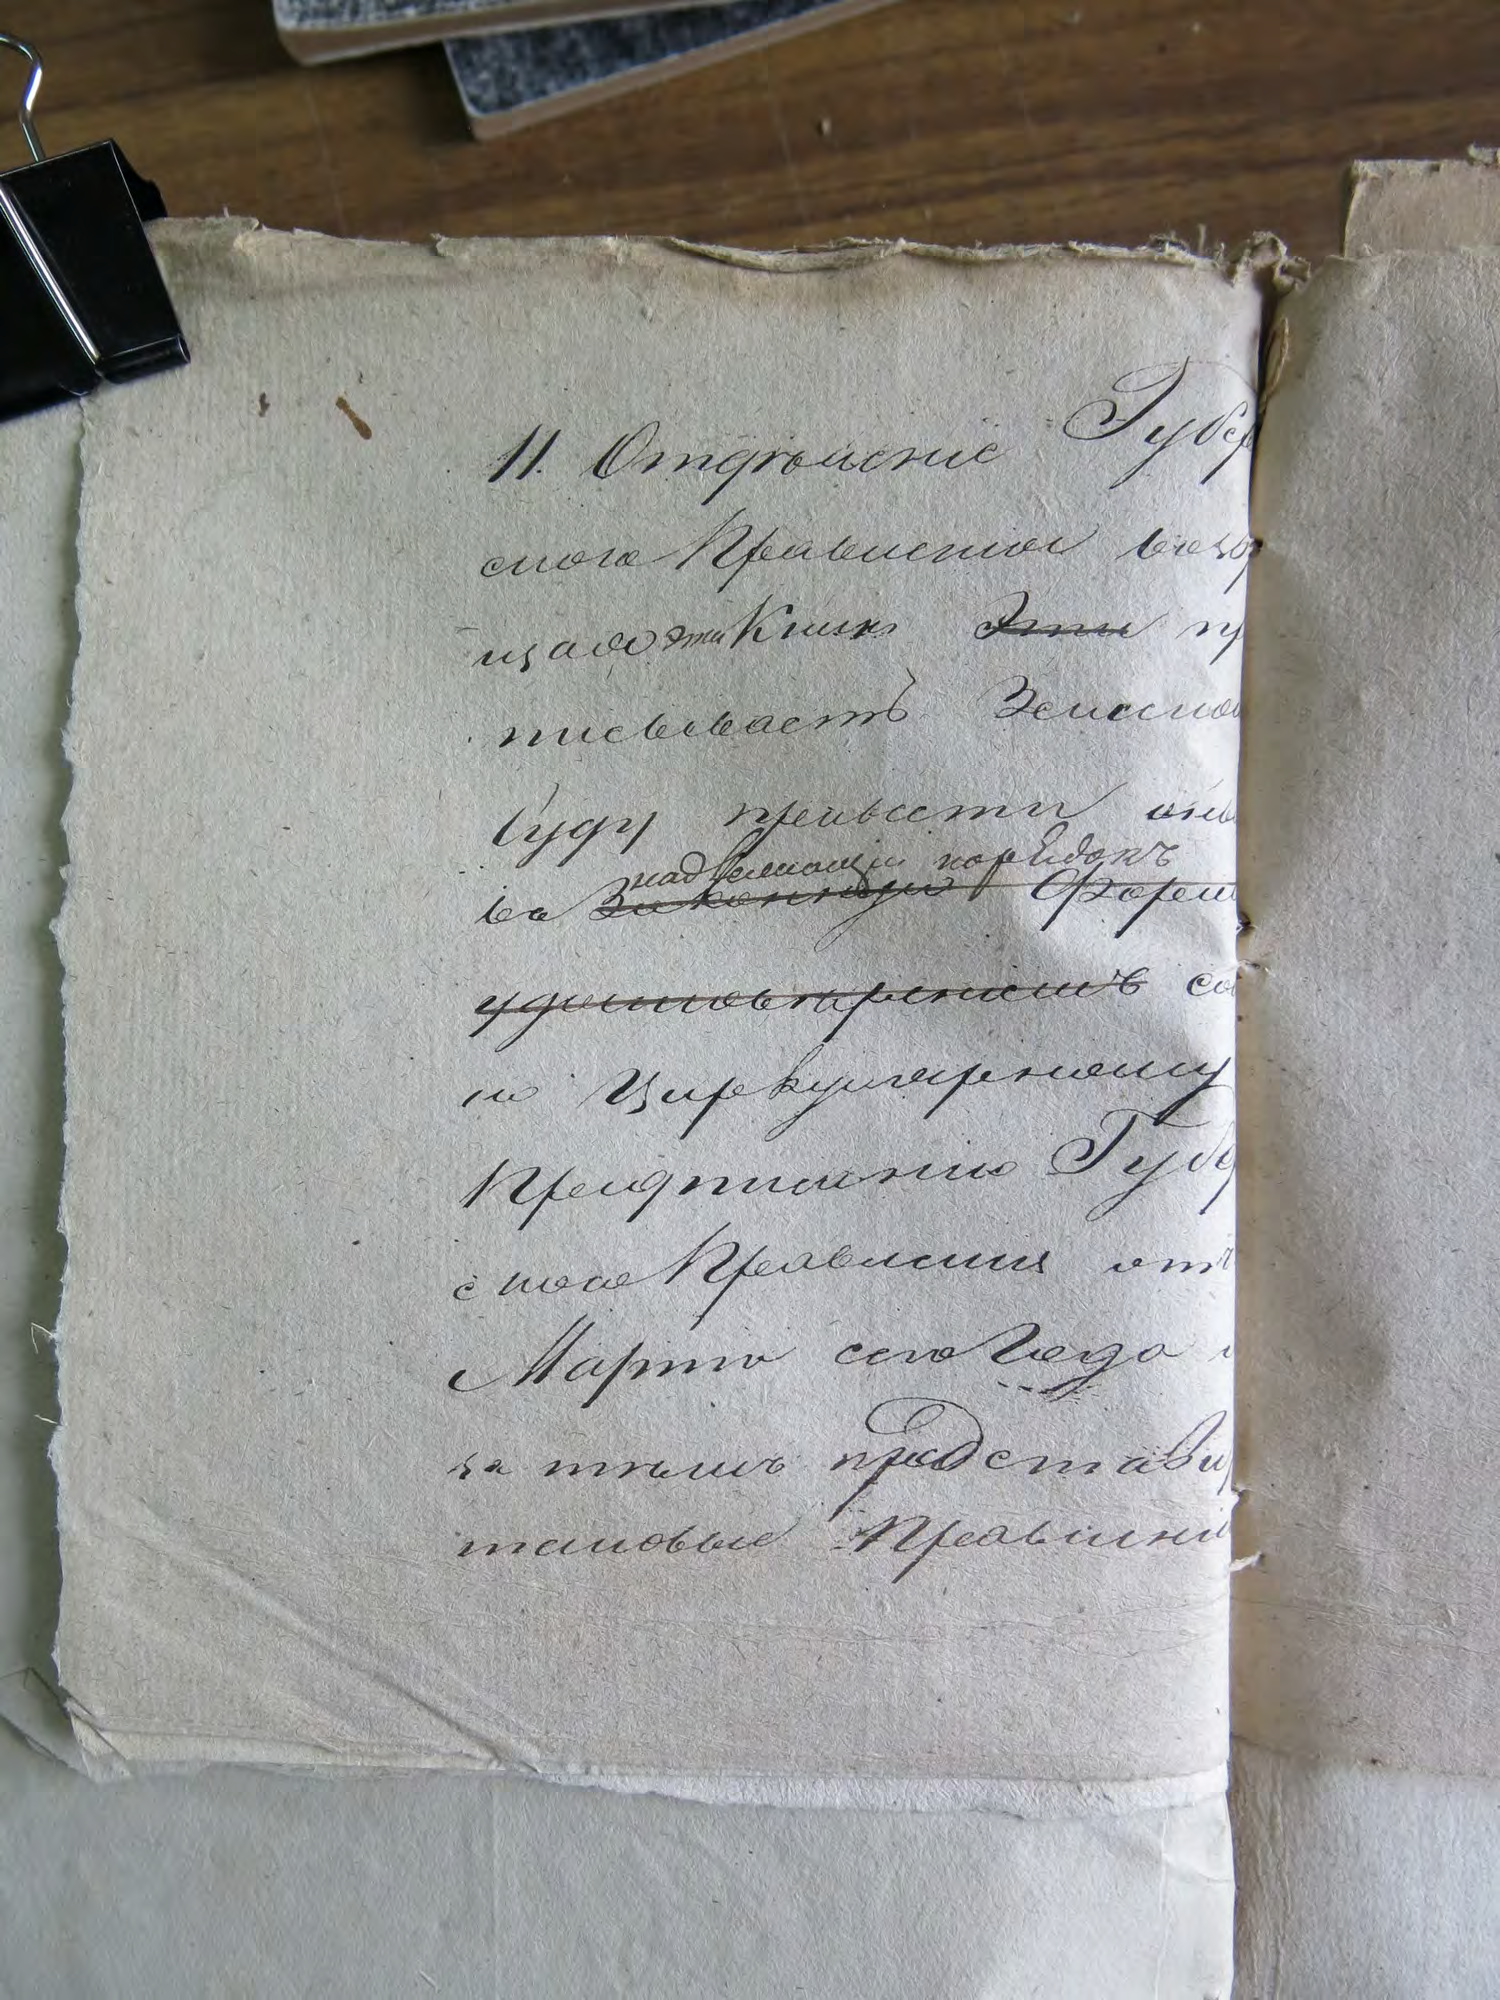 11. Отдѣленіе Губер
скаго Правленія возвр
щая эти Книги Эти пр
писываетъ Земском
Суду привести
надлежащій порядокъ
во Законную Форм
удостовѣреніемъ со
но Циркулярному
Предписанію Губе
скаго Правленія отъ
Марта сего Года
за тѣмъ представи
таковые Правлені